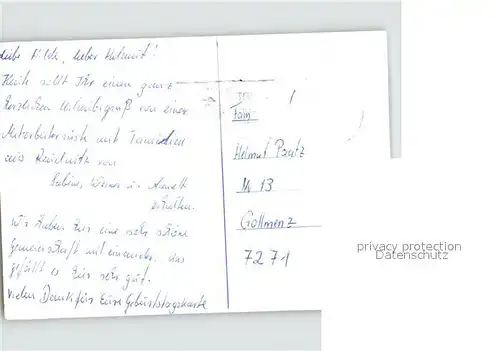 Liebe Hilde, lieber Helmut!
Heute sollt Ihr einen ganz
herzlichen Urlaubsgruß von einer
Mitarbeiterrüste mit Familien
aus von
Sabine, Werner u.
erhalten.
Wir haben hier eine sehr schöne
Gemeinschaft miteinander. Uns
gefällt es hier sehr gut.
Vielen Dank für Eure Geburtstagskarte
Fam.
Helmut
Nr 13
Gollmenz
7271
privacy protection
Datenschutz